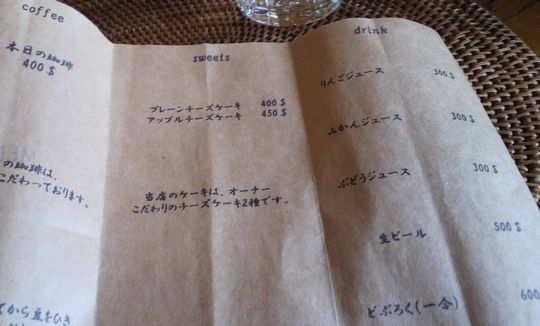 coffee
本日の珈琲
400$
の珈琲は、
こだわっております。
てから豆をひき
sweets
プレーンチーズケーキ 400$
アップルチーズケーキ 450$
当店のケーキは、オーナー
こだわりのチーズケーキ2種です。
drink
りんごジュース 300$
みかんジュース 300$
ぶどうジュース 300$
生ビール 500$
どぶろく(一合) 600